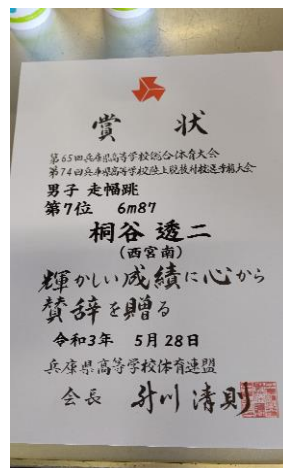 賞状
第65回兵庫県高等学校総合体育大会
第74回兵庫県高等学校陸上競技対校選手権大会
男子 走幅跳
第7位 6m87
桐谷 透二
(西宮南)
輝かしい成績に心から
賛辞を贈る
令和3年 5月28日
兵庫県高等学校体育連盟
会長 川 清則